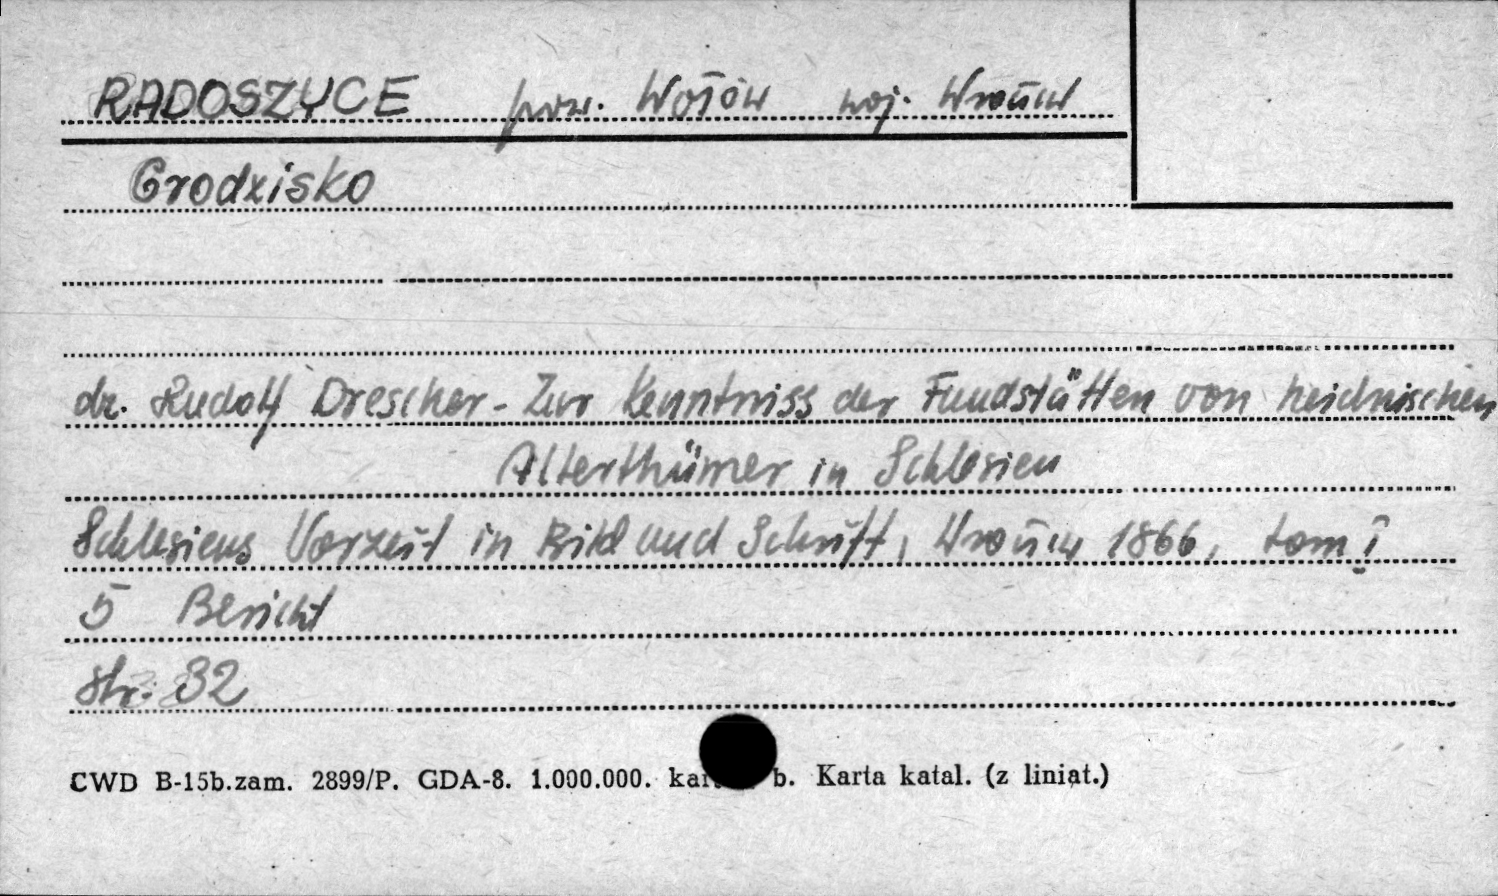 RADOSZYCE pow. Wołów woj. Wrocław
Grodzisko
dr. Rudolf Drescher - Zur Kenntniss der Fundstätten von heidnischen
Alterthümer in Schlesien
Schlesiens Vorzeit in Bild und Schrift, Wrocław 1866, tom I
5 Bericht
str. 32
CWD B-15b.zam. 2899/P. GDA-8. 1.000.000. b. Karta katal. (z liniat.)